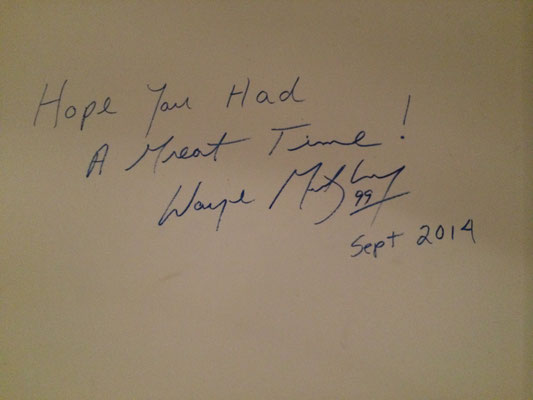 Hope You Had
A Great Time!
Wayne Gretzky
99
Sept 2014